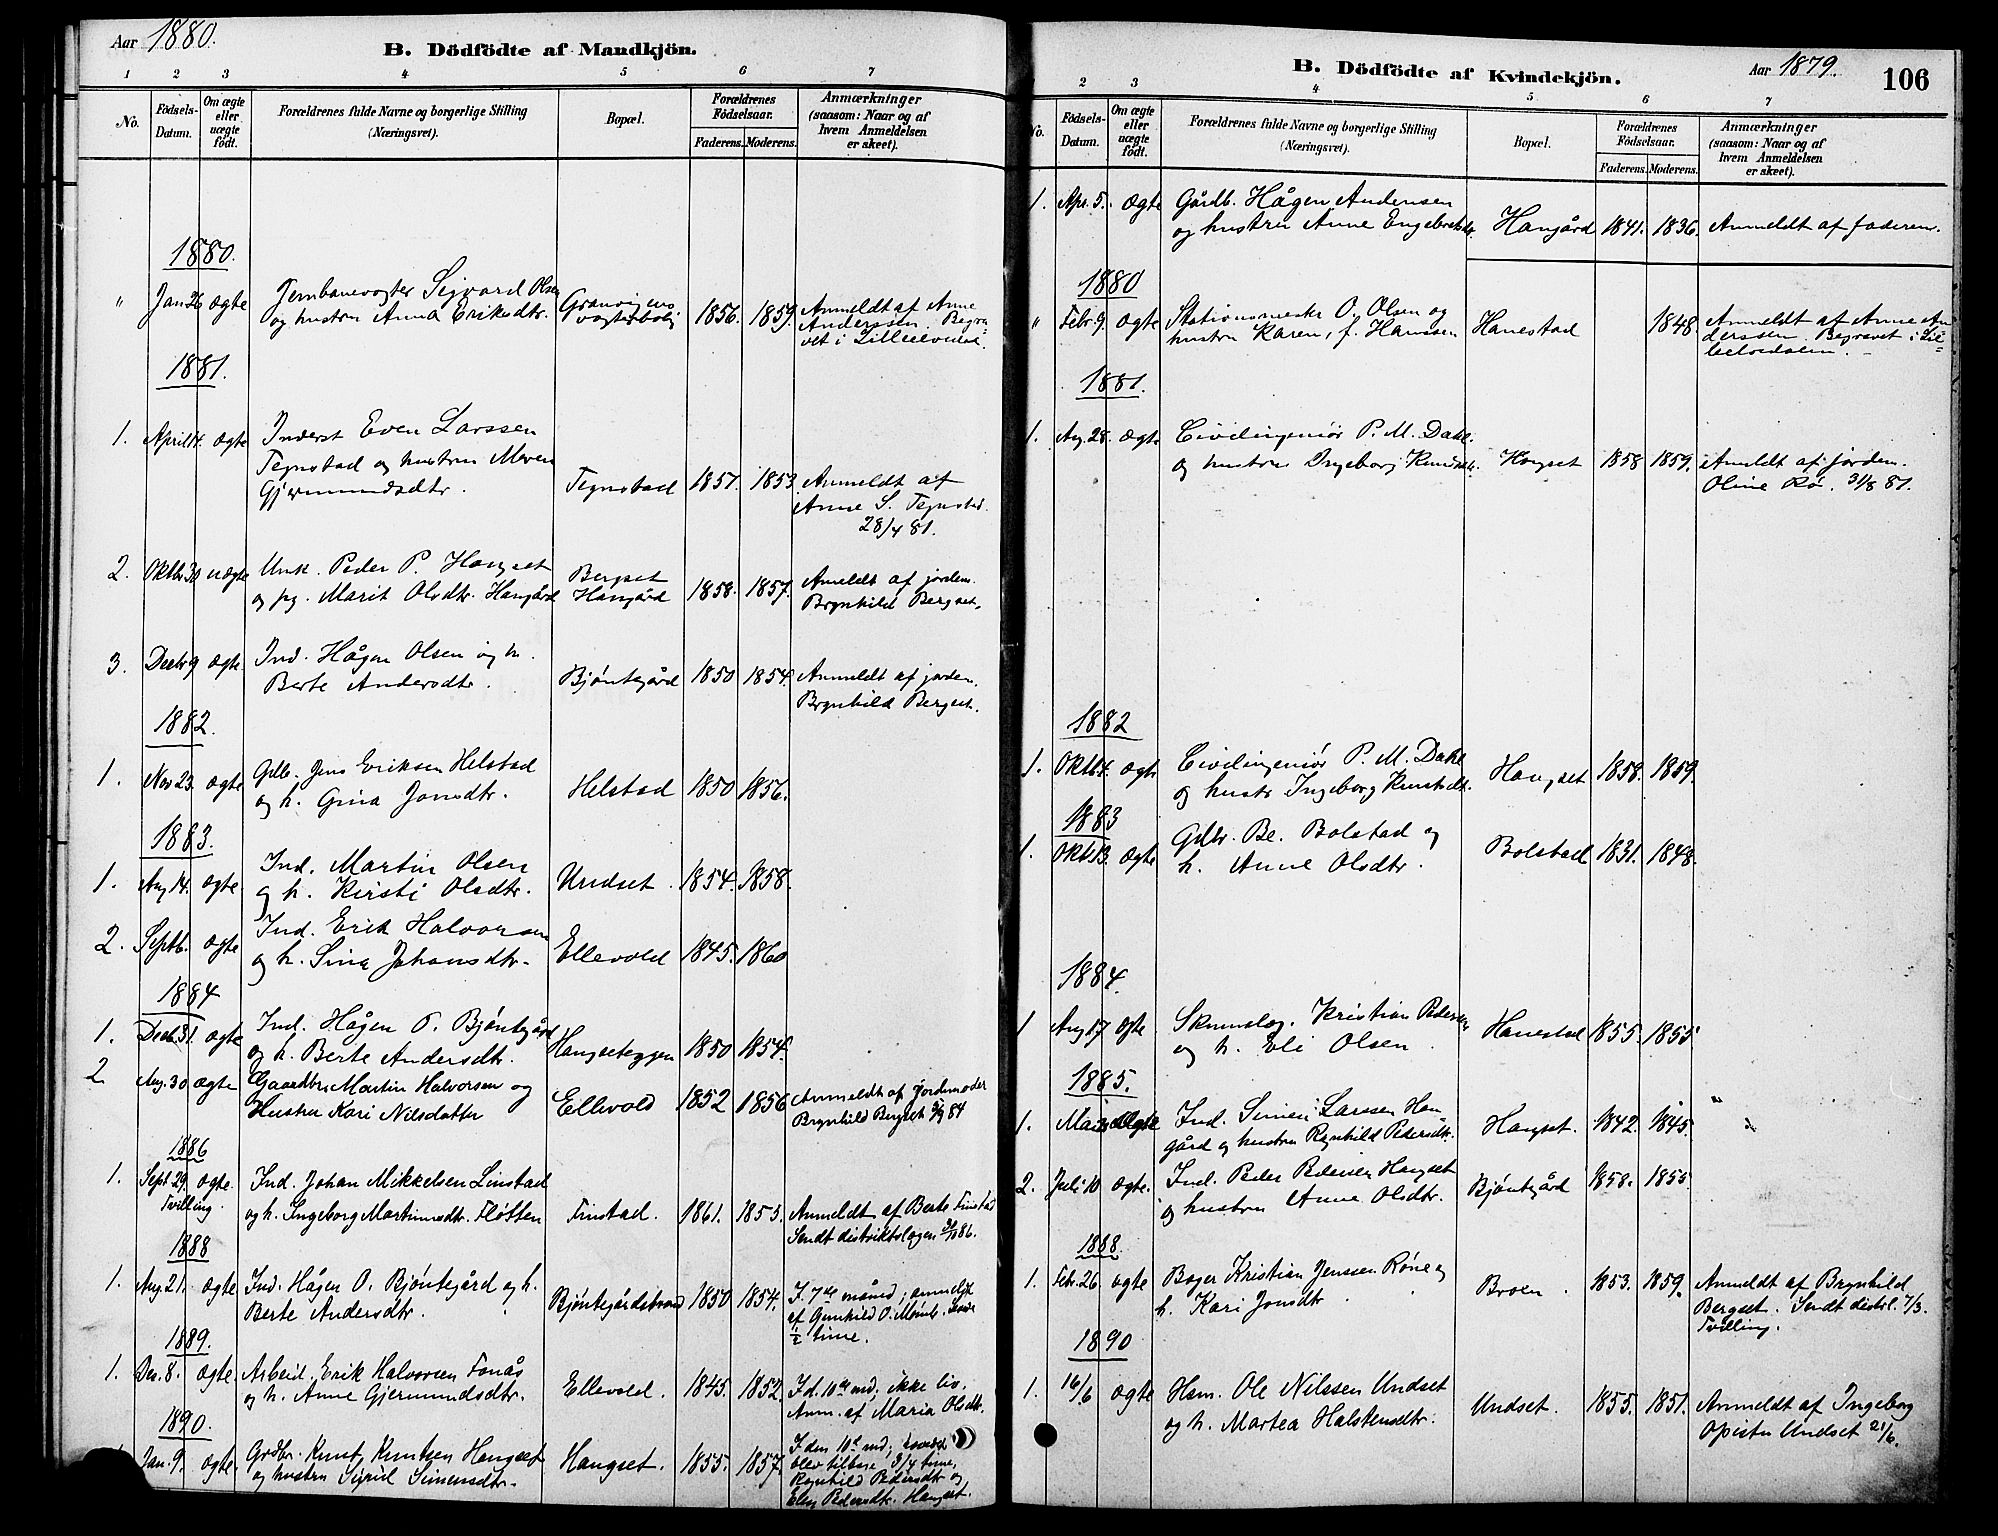 Aar 1880.
B. Dödfödte af Mandkjön.
1 2 3 4 5 6 7
No.
Födsels-Datum.
Om ægte eller uægte født.
Forældrenes fulde Navne og borgerlige Stilling (Næringsvei).
Bopæl.
Forældrenes Födselsaar.
Faderens. Moderens.
Anmærkninger (saasom: Naar og af hvem Anmeldelsen er skeet).
1880.
" Jan 26 ægte Jernbanevogter Sigvard Olsen
og hustru Anna Eriksdtr. 1856. 1859. Anmeldt af Anne
Anderssen. Begra
vet i Lilleelvedal.
1881.
1. April 14. ægte Inderst Even Larssen
Tegnstad og hustru Maren
Gjermundsdtr. Tegnstad 1857. 1853. Anmeldt af
Anne S. Tegnstad.
28/4 81.
2. Oktbr 30 uægte Unk. Peder P. Hangset
og pg. Marit Olsdtr. Hangård
Bergset
Hangård 1858. 1857. Anmeldt af jordem.
Brynhild Bergset.
3. Decbr 9 ægte. Ind. Hågen Olsen og h.
Berte Andersdtr. Bjøntegård 1850 1854. Anmeldt af jordem.
Brynhild Bergset.
1882.
1. Nov 23. ægte Gdb. Jens Eriksen Helstad
og h. Gina Jonsdtr. Helstad 1850 1856.
1883.
1. Aug 14. ægte Ind. Martin Olsen
og h. Kirsti Olsdtr. Undset. 1854. 1858.
2. Septb. ægte Ind. Erik Halvorsen
og h. Sina Johansdtr. Ellevold 1845. 1860
1884
1. Decb. 31. ægte Ind. Hågen O. Bjøntegård
og h. Berte Andersdtr. Hangseteggen 1850 1854.
2 Aug. 30 ægte Gaardbr. Martin Halvorsen og
Hustru Kari Nilsdatter Ellevold 1852 1856 Anmeldt af Jordemoder
Brynhild Bergset 84
1886
1. Sept 29. ægte. Ind. Johan Mikkelsen Linstad
Tvilling. og h. Ingeborg Martinusdtr. Fløtten Finstad. 1861. 1853. Anmeldt af Berte Finstad
Sendt distriktslægen 86.
1888
1. Aug. 21. ægte Ind. Hågen O. Bjøntegård og h.
Berte Andersdtr. Bjøntegårdstrand 1850 1854. I 7de måned; anmeldt
af Gunhild O.
½ time.
1889.
1. Des. 8. ægte. Arbeid. Erik Halvorsen Fonås
og h. Anne Gjermundsdtr. Ellevold. 1845. 1852. I d. 10de md; ikke liv.
Anm. af Maria Olsdtr.
1890.
Jan. 9. ægte. Grdbr. Knut Knutsen Hangset
og hustru Sigrid Simensdtr. Hangset. 1855. 1857. I den 10de md;
blev tilbage 3/4 time,
Ragnhild Pedersdtr og
Eli Pedersdtr. Hangset.
B. Dödfödte af Kvindekjön.
Aar 1879.
106
2 3 4 5 6 7
No.
Födsels-Datum.
Om ægte eller uægte født.
Forældrenes fulde Navne og borgerlige Stilling (Næringsvei).
Bopæl.
Forældrenes Födselsaar.
Faderens. Moderens.
Anmærkninger (saasom: Naar og af hvem Anmeldelsen er skeet).
1. Apr. 5. ægte Gårdb. Hågen Andersen
og hustru Anne Engebretsdtr. Hangård 1841. 1836. Anmeldt af faderen.
1880
" Febr. 9. ægte Stationsmester O. Olsen og
hustru Karen, f. Hanssen Hanestad 1848. Anmeldt af Anne An
derssen. Begravet i Lil=
leelvedalen.
1881.
1. Aug. 28. ægte Civilingeniør P. M. Dahl
og hustru Ingeborg Knudsdtr. Hangset 1858 1859. Anmeldt af jordem.
Oline Rø. 31/8 81.
1882
1. Oktb 4. ægte Civilingeniør P. M. Dahl
og hustr Ingeborg Knutsdtr. Hangset 1858. 1859.
1883
1. Oktb 13. ægte Gdbr. Be. Bolstad og
h. Anne Olsdtr. Bolstad 1831. 1848.
1884.
1 Aug 17 ægte Skrædderlæg. Kristian Pedersen
og h. Eli Olsen. Hanestad 1855. 1855
1885.
1. Mai ægte Ind. Simen Larssen Han-
gård og hustru Ragnhild Pedersdtr. Hangset. 1842. 1845.
2. Juli 10 ægte. Ind. Peder Pedersen Hangset
og hustru Anne Olsdtr. Bjøntegård 1858. 1855.
1888.
1. Febr. 26. ægte Bager Kristian Jenssen Røne og
h. Kari Jonsdtr. Broen. 1853. 1859. Anmeldt af Brynhild
Bergset. Sendt distrl. 7/3.
Tvilling.
1890
1. 16/6 ægte Hsm. Ole Nilssen Undset
og h. Martea Halstensdtr. Undset. 1855. 1851. Anmeldt af Ingeborg
Undset 21/6.